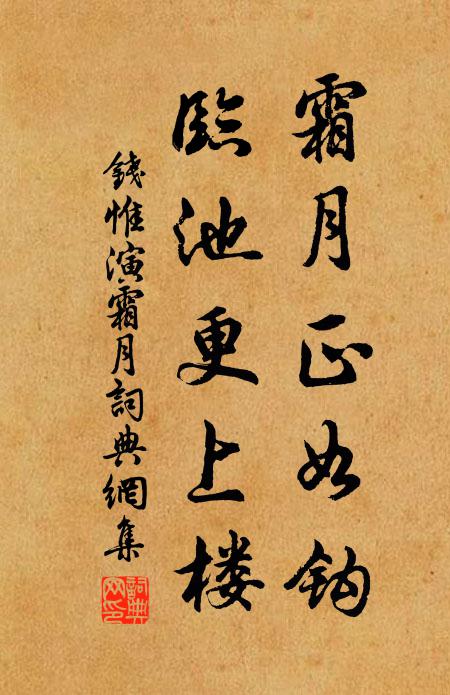 霜月正如鈎
臨池更上楼
錢惟演霜月詞典網集
詞典网印